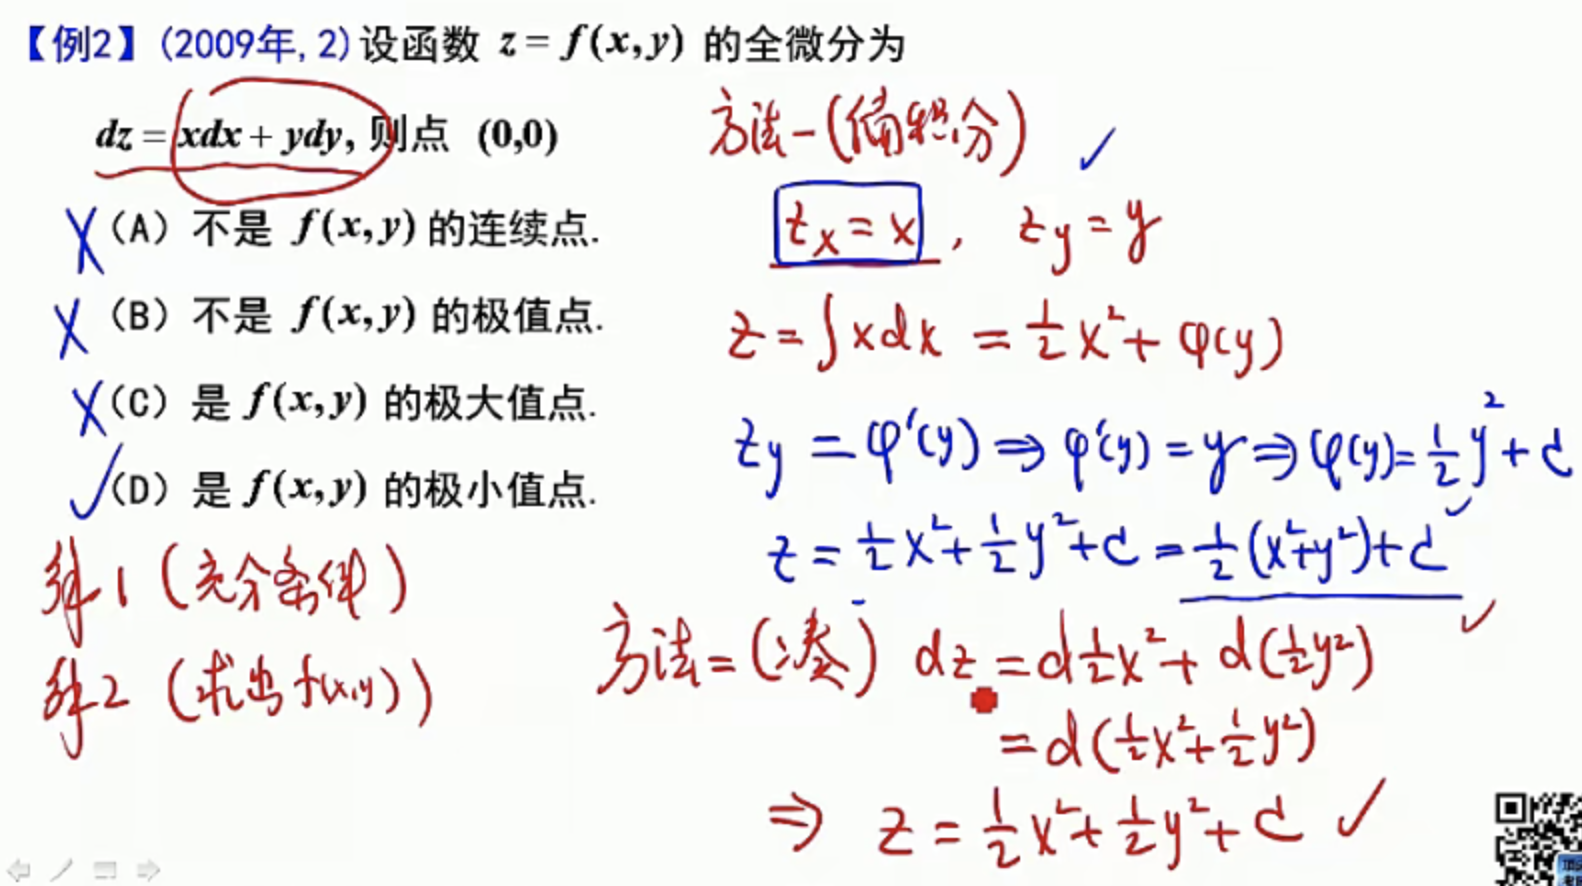 【例2】(2009年, 2) 设函数 z = f(x,y) 的全微分为
dz = xdx + ydy, 则点 (0,0)
(A) 不是 f(x,y) 的连续点.
(B) 不是 f(x,y) 的极值点.
(C) 是 f(x,y) 的极大值点.
(D) 是 f(x,y) 的极小值点.
解1 (充分条件)
解2 (求出f(x,y))
方法一(偏积分)
z_x = x , z_y = y
z = ∫xdx = 1/2 x² + φ(y)
z_y = φ'(y) ⇒ φ'(y) = y ⇒ φ(y) = 1/2 y² + C
z = 1/2 x² + 1/2 y² + C = 1/2 (x²+y²) + C
方法二(凑) dz = d 1/2 x² + d(1/2 y²)
= d(1/2 x² + 1/2 y²)
⇒ z = 1/2 x² + 1/2 y² + C